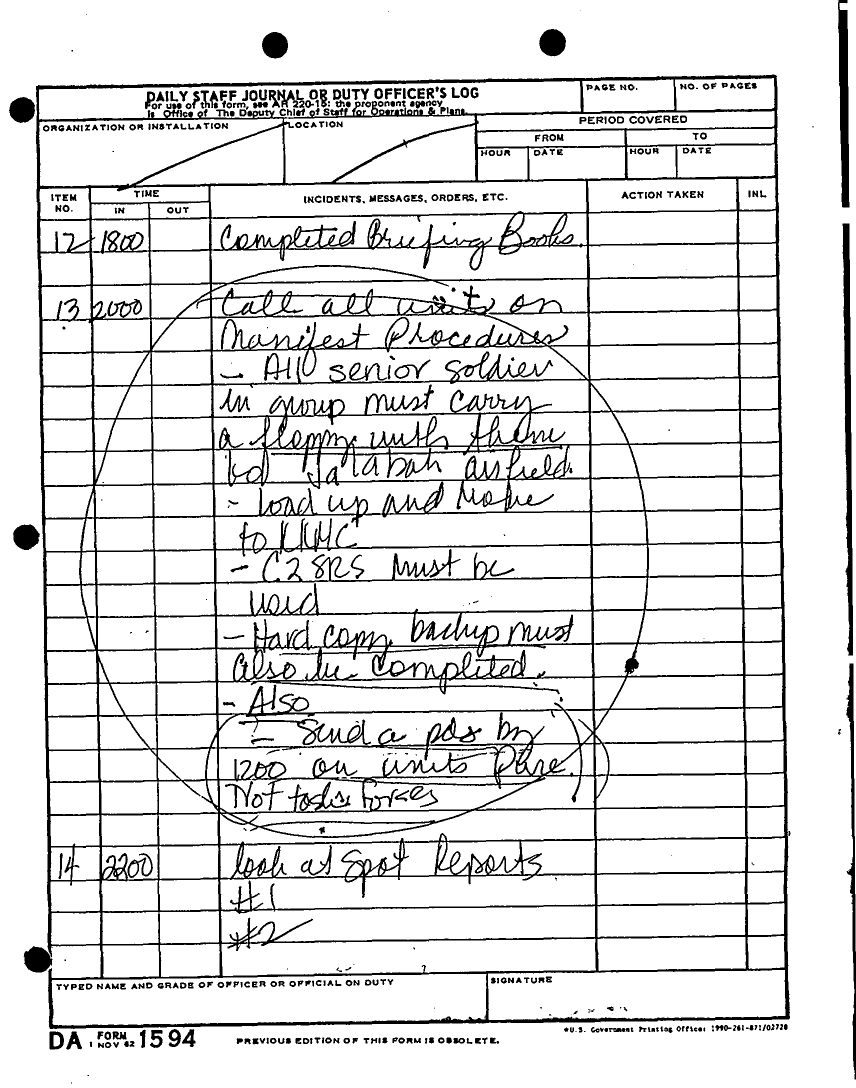 DAILY STAFF JOURNAL OR DUTY OFFICER'S LOG
For use of this form, see AR 220-15: the proponent agency
is Office of The Deputy Chief of Staff for Operations & Plans.
PAGE NO.
NO. OF PAGES
ORGANIZATION OR INSTALLATION
LOCATION
PERIOD COVERED
FROM
TO
HOUR DATE HOUR DATE
ITEM NO.
TIME
IN OUT
INCIDENTS, MESSAGES, ORDERS, ETC.
ACTION TAKEN
INL
12 1800 Completed Briefing Books.
13 2000 Call all units on
Manifest Procedures
- All senior soldier
in group must carry
a floppy with them
Jalabah airfield.
- Load up and Move
to KKMC
- C2SRS Must be
used
- Hard copy backup must
also be completed.
- Also
- Send a pds by
1200 on units Pure
Not tasks forces
14 2200 look at Spot Reports
#1
#2
TYPED NAME AND GRADE OF OFFICER OR OFFICIAL ON DUTY
SIGNATURE
DA FORM 1594
1 NOV 62
PREVIOUS EDITION OF THIS FORM IS OBSOLETE.
*U.S. Government Printing Office: 1990-261-871/02720